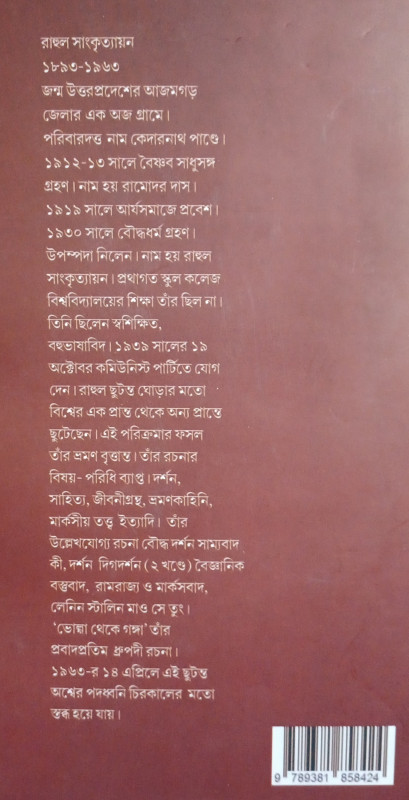 রাহুল সাংকৃত্যায়ন
১৮৯৩-১৯৬৩
জন্ম উত্তরপ্রদেশের আজমগড়
জেলার এক অজ গ্রামে।
পরিবারদত্ত নাম কেদারনাথ পাণ্ডে।
১৯১২-১৩ সালে বৈষ্ণব সাধুসঙ্গ
গ্রহণ। নাম হয় রামোদর দাস।
১৯১৯ সালে আর্যসমাজে প্রবেশ।
১৯৩০ সালে বৌদ্ধধর্ম গ্রহণ।
উপম্পদা নিলেন। নাম হয় রাহুল
সাংকৃত্যায়ন। প্রথাগত স্কুল কলেজ
বিশ্ববিদ্যালয়ের শিক্ষা তাঁর ছিল না।
তিনি ছিলেন স্বশিক্ষিত,
বহুভাষাবিদ। ১৯৩৯ সালের ১৯
অক্টোবর কমিউনিস্ট পার্টিতে যোগ
দেন। রাহুল ছুটন্ত ঘোড়ার মতো
বিশ্বের এক প্রান্ত থেকে অন্য প্রান্তে
ছুটেছেন। এই পরিক্রমার ফসল
তাঁর ভ্রমণ বৃত্তান্ত। তাঁর রচনার
বিষয়- পরিধি ব্যাপ্ত। দর্শন,
সাহিত্য, জীবনীগ্রন্থ, ভ্রমণকাহিনি,
মার্কসীয় তত্ত্ব ইত্যাদি। তাঁর
উল্লেখযোগ্য রচনা বৌদ্ধ দর্শন সাম্যবাদ
কী, দর্শন দিগদর্শন (২ খণ্ডে) বৈজ্ঞানিক
বস্তুবাদ, রামরাজ্য ও মার্কসবাদ,
লেনিন স্টালিন মাও সে তুং।
‘ভোল্গা থেকে গঙ্গা’ তাঁর
প্রবাদপ্রতিম ধ্রুপদী রচনা।
১৯৬৩-র ১৪ এপ্রিলে এই ছুটন্ত
অশ্বের পদধ্বনি চিরকালের মতো
স্তব্ধ হয়ে যায়।
9 789381 858424